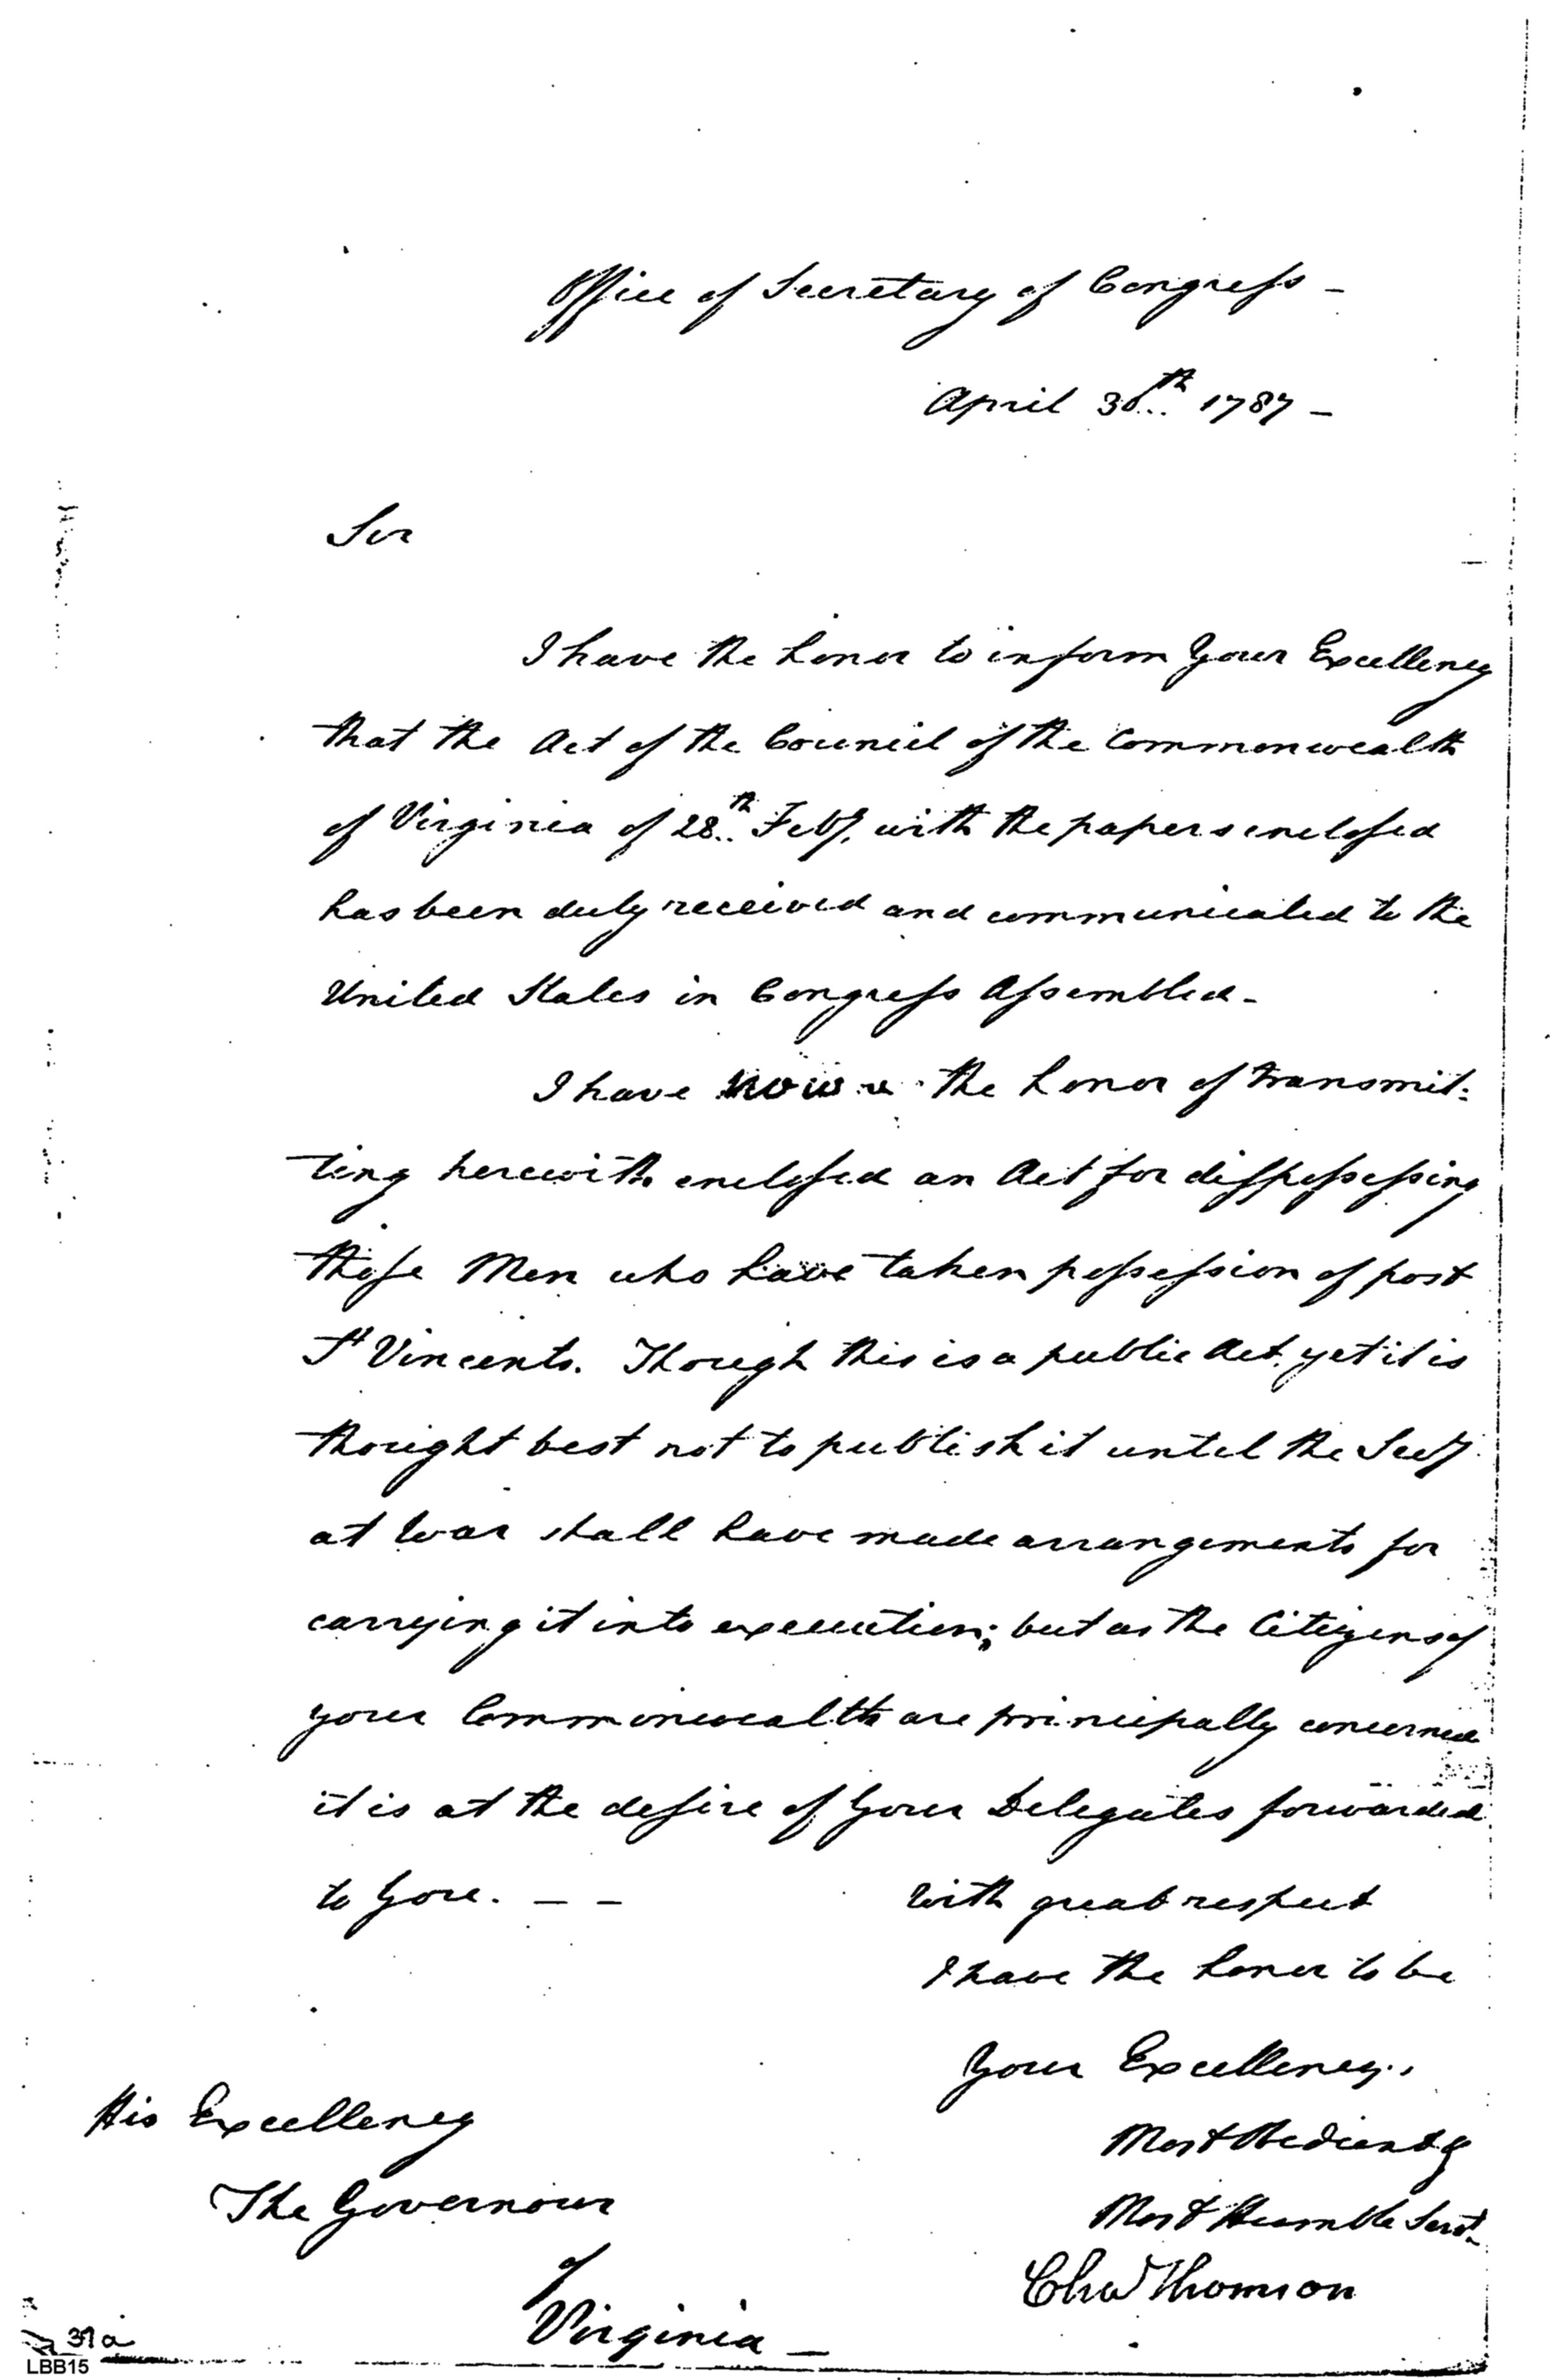 Office of Secretary of Congress –
April 30th 1787 –
Sir
I have the honor to inform Your Excellency
that the Act of the Council of the Commonwealth
of Virginia of 28th Feby. with the papers enclosed
has been duly received and communicated to the
United States in Congress Assembled –
I have now the honor of transmit:
ting herewith enclosed an Act for dispossessing
those Men who have taken possession of post
St Vincents. Though this is a public Act, yet it is
thought best not to publish it until the Secy
at War shall have made arrangements for
carrying it into execution; but as the Citizens of
your Commonwealth are principally concerned
it is at the desire of Your Delegates forwarded
to You. – –
With great respect
I have the honor to be
Your Excellency.,
Most Obedient &
Most Humble Servt.
Chas Thomson
His Excellency
The Governour
of
Virginia –
39a
LBB15